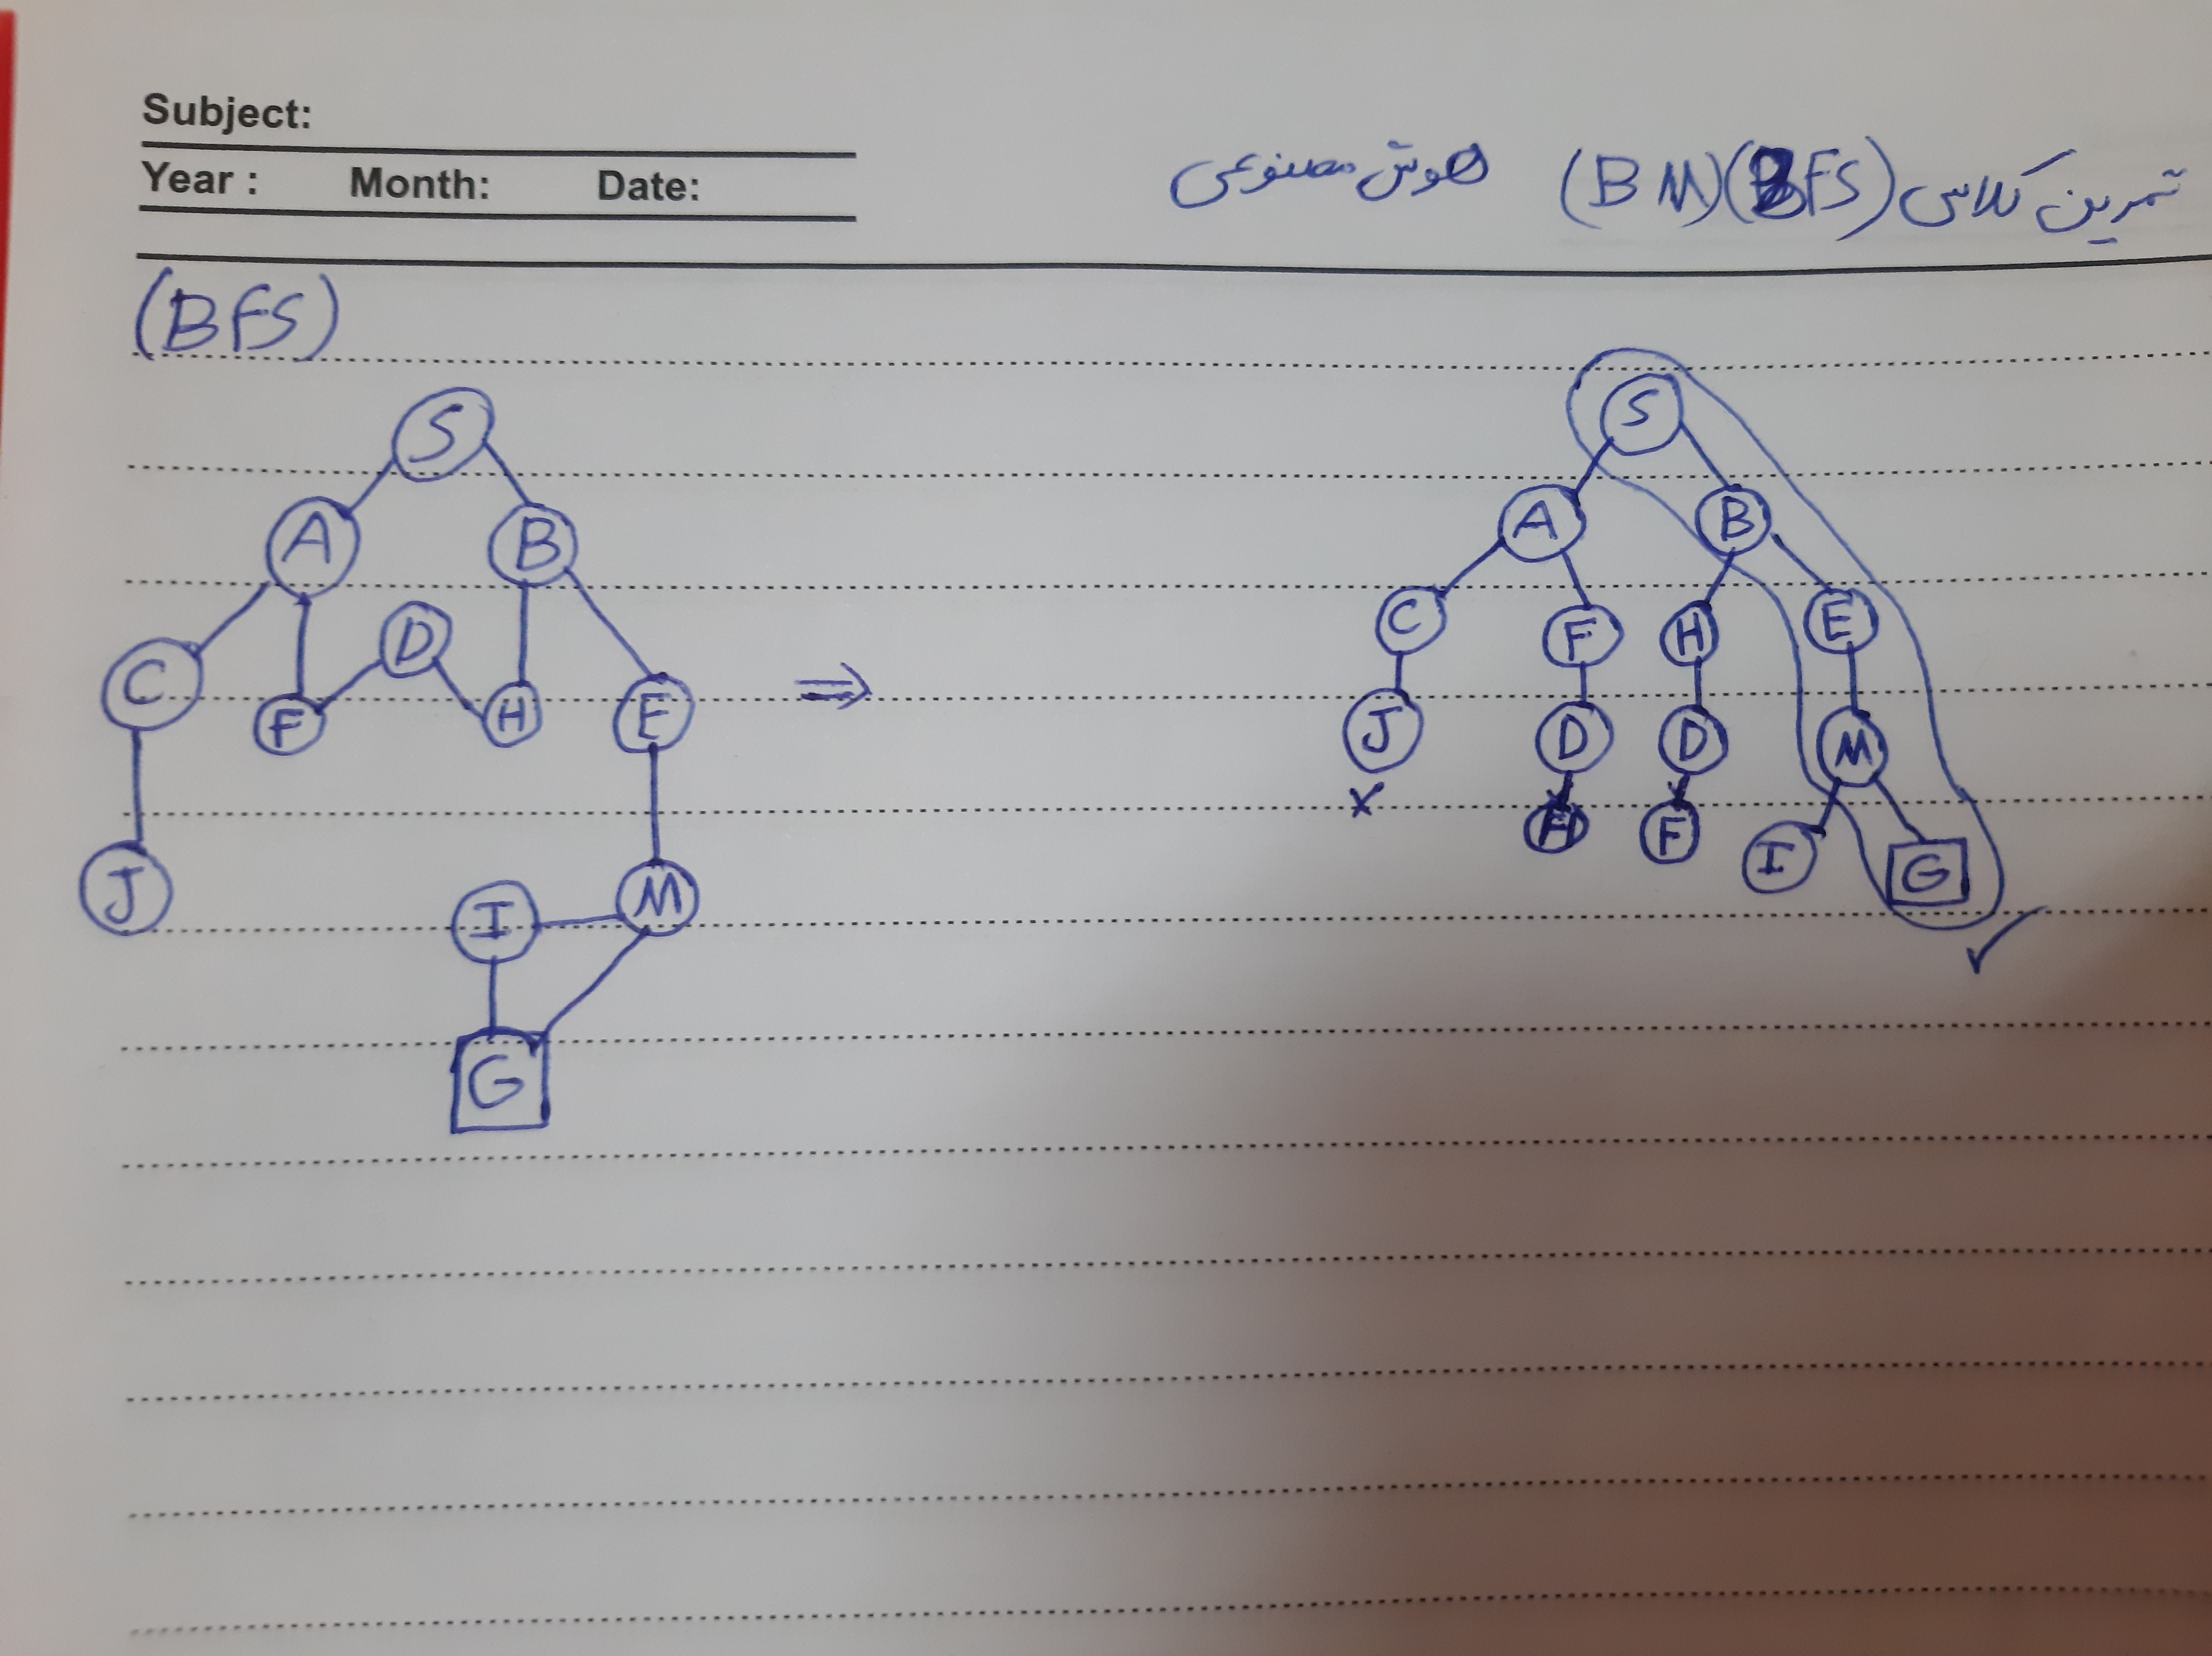 Subject:
Year : Month: Date:
تمرین کلاسی (BFS) (BM) هوش مصنوعی
(BFS)
S
A B
C F D H E
J I M
G
⇒
S
A B
C F H E
J D D M
× F I G ✓